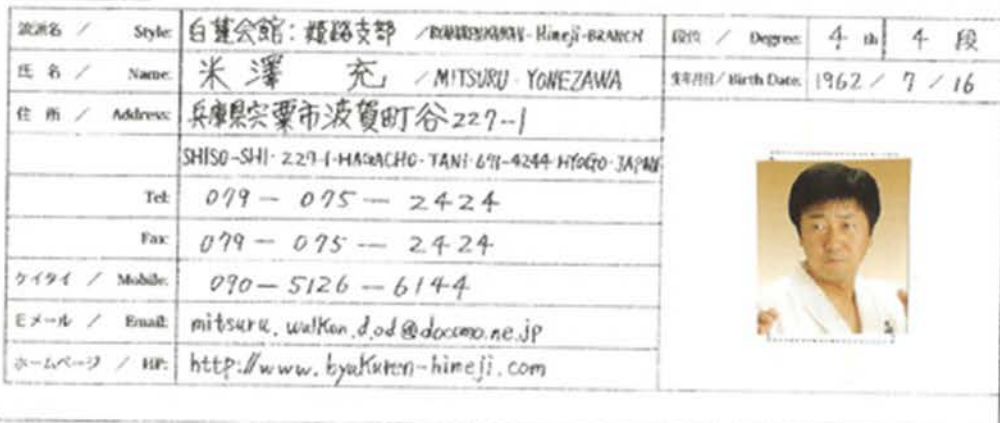 流派名 / Style: 白蓮会館:姫路支部 /BYAKURENKAIKAN-Himeji-BRANCH 段位 / Degree: 4 th 4 段
氏 名 / Name: 米澤 充 /MITSURU YONEZAWA 生年月日/Birth Date: 1962 / 7 / 16
住 所 / Address: 兵庫県宍粟市波賀町谷227-1
SHISO-SHI・227-1・HAGACHO・TANI・671-4244 HYOGO・JAPAN
Tel: 079-075-2424
Fax: 079-075-2424
ケイタイ / Mobile: 090-5126-6144
Eメール / Email: mitsuru.walkon.d.od@docomo.ne.jp
ホームページ / HP: http://www.byakuren-himeji.com